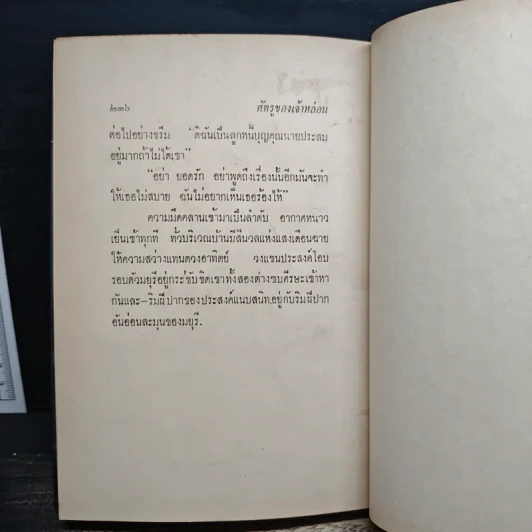 ๕๒๓ ศัตรูของเจ้าหล่อน
ต่อไปอย่างขรึม "ดิฉันเป็นลูกหนี้บุญคุณนายประสม
อยู่มากถ้าไม่ได้เขา"
"อย่า ยอดรัก อย่าพูดถึงเรื่องนั้นอีกมันจะทำ
ให้เธอไม่สบาย ฉันไม่อยากเห็นเธอร้องไห้"
ความมืดคลานเข้ามาเป็นลำดับ อากาศหนาว
เย็นเข้าทุกที ทั่วบริเวณบ้านมีสีนวลแห่งแสงเดือนฉาย
ให้ความสว่างแทนดวงอาทิตย์ วงแขนประสงค์โอบ
รอบตัวมยุรีอยู่กระชับชิดเขาทั้งสองต่างซบศีรษะเข้าหา
กันและ-ริมฝีปากของประสงค์แนบสนิทอยู่กับริมฝีปาก
อันอ่อนละมุนของมยุรี.